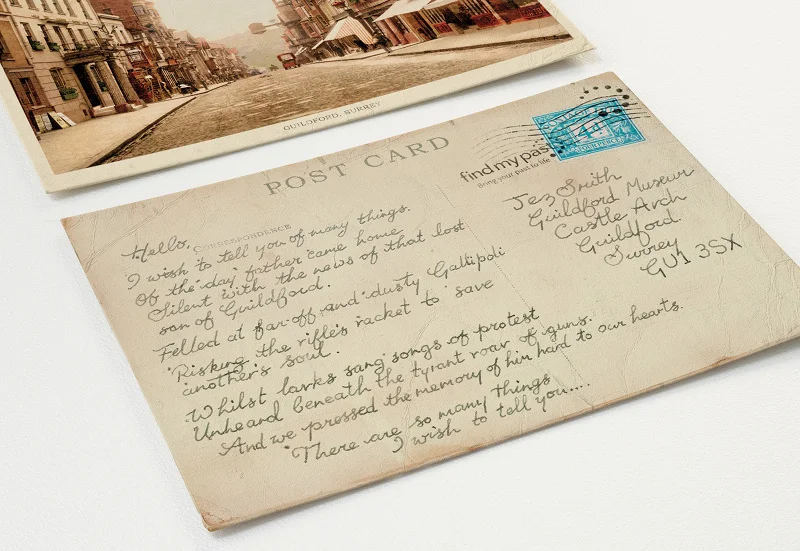 GUILDFORD, SURREY
POST CARD
CORRESPONDENCE
Hello,
I wish to tell you of many things.
Of the day father came home
Silent with the news of that lost
son of Guildford.
Felled at far-off and dusty Gallipoli
Risking the rifle's racket to save
another's soul.
Whilst larks sang songs of protest
Unheard beneath the tyrant roar of guns.
And we pressed the memory of him hard to our hearts.
There are so many things
I wish to tell you....
findmypast
Bring your past to life
POSTAGE
FOURPENCE
Jez Smith
Guildford Museum
Castle Arch
Guildford.
Surrey
GU1 3SX